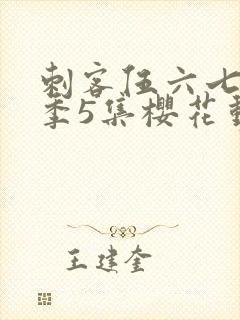 刺客伍六七
季5集樱花動
王建奎